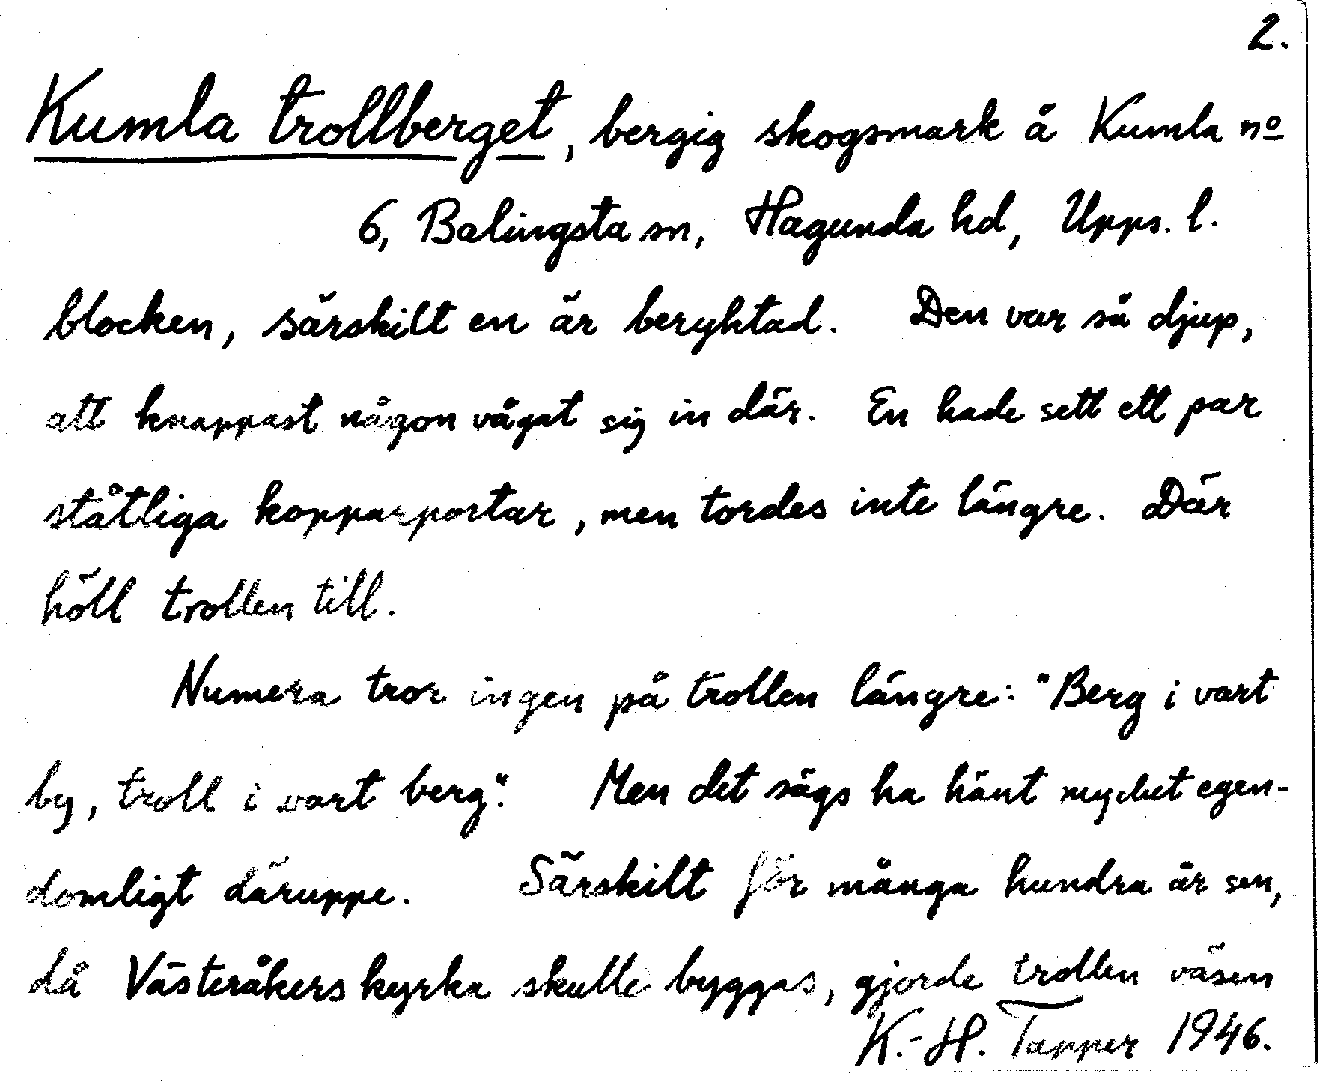 2.
Kumla trollberget, bergig skogsmark å Kumla nº
6, Balingsta sn, Hagunda hd, Upps. l.
blocken, särskilt en är beryktad. Den var så djup,
att knappast någon vågat sig in där. En hade sett ett par
ståtliga kopparportar, men tordes inte längre. Där
höll trollen till.
Numera tror ingen på trollen längre: "Berg i vart
by, troll i vart berg". Men det sägs ha hänt mycket egen-
domligt däruppe. Särskilt för många hundra år sen,
då Västeråkers kyrka skulle byggas, gjorde trollen väsen
K.-H. Tapper 1946.